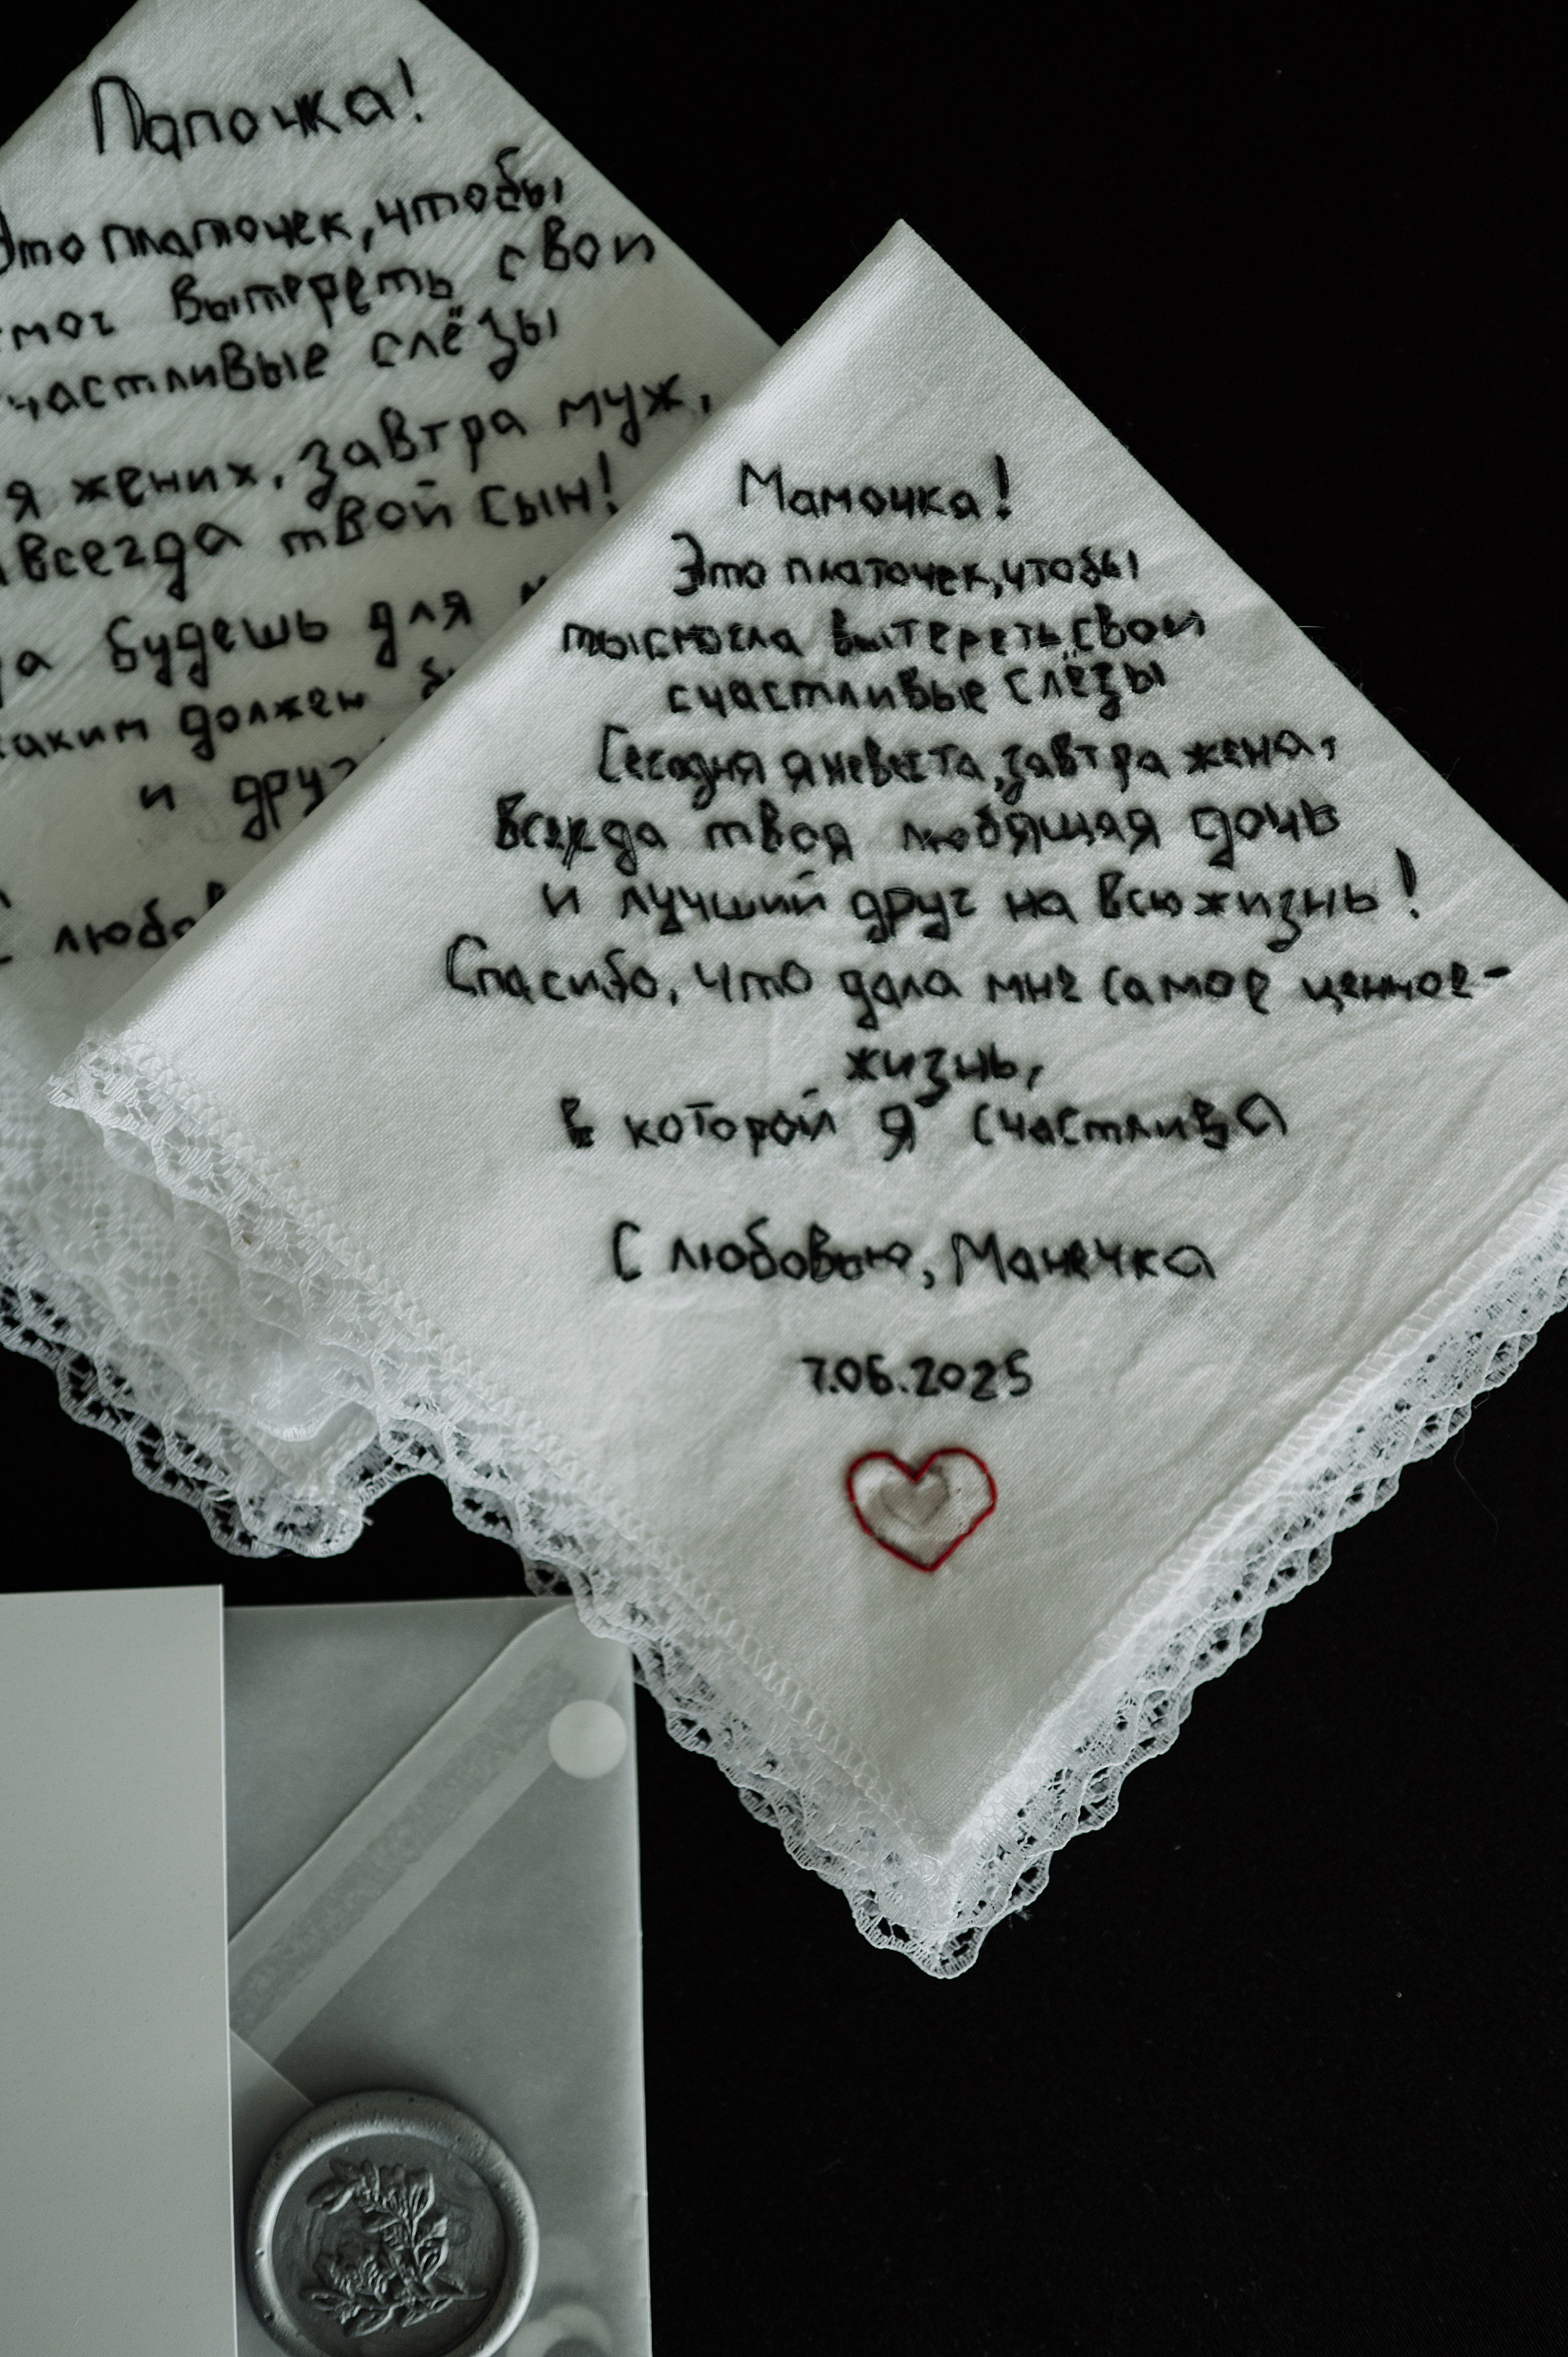 Папочка!
Это платочек, чтобы
смог вытереть свои
счастливые слёзы
я жених, завтра муж,
всегда твой сын!
будешь для
каким должен
и друг
С любов
Мамочка!
Это платочек, чтобы
ты смогла вытереть свои
счастливые слёзы
Сегодня я невеста, завтра жена,
Всегда твоя любящая дочь
и лучший друг на всю жизнь!
Спасибо, что дала мне самое ценное -
жизнь,
в которой я счастлива
С любовью, Манечка
7.06.2025